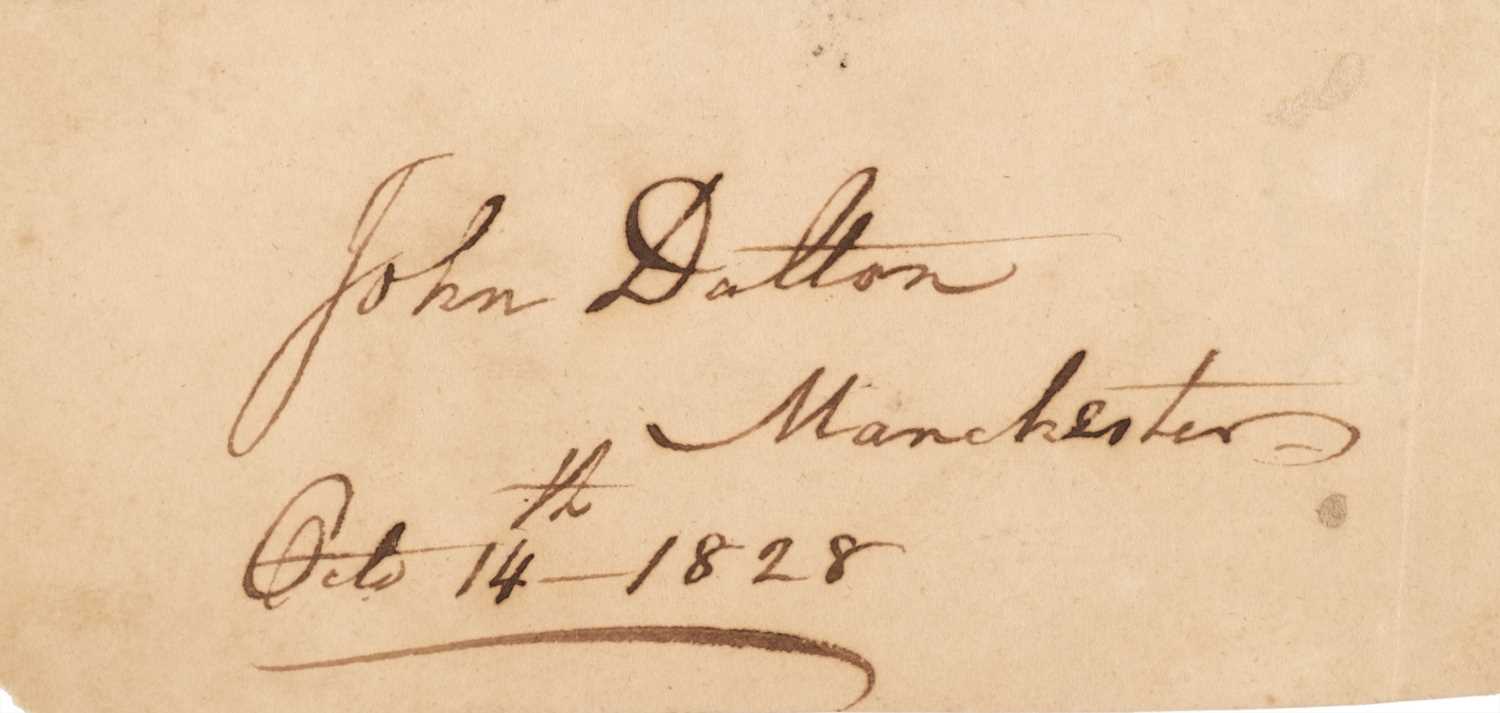 John Dalton
Manchester
Octo 14th — 1828